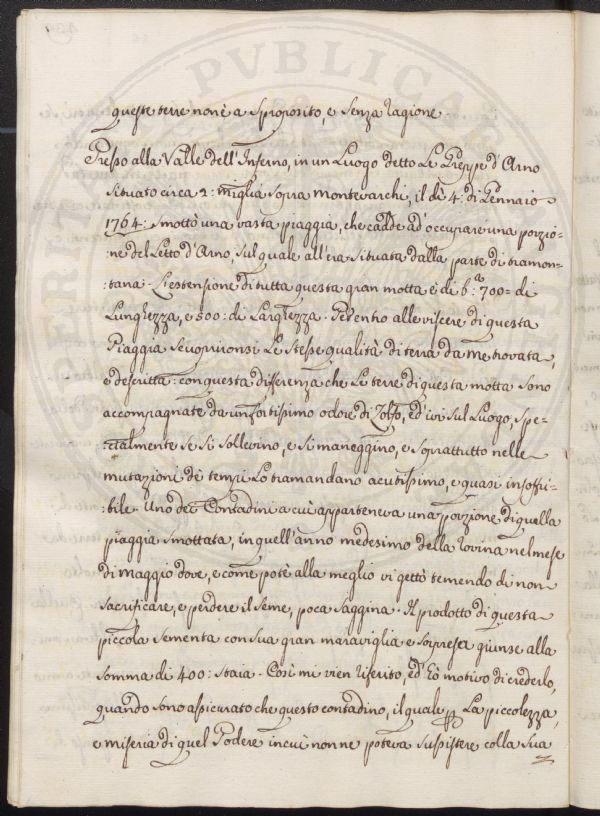 queste terre non è a sproposito, e senza ragione
Presso alla Valle dell'Inferno, in un Luogo detto Le Greppe d'Arno
situato circa 2: miglia sopra Montevarchi, il dì 4: di Gennaio
1764: smottò una vasta piaggia, che cadde ad'occupare una porzio=
:ne del Letto d'Arno, sul quale all'era situata dalla parte di tramon=
:tana. L'estensione di tutta questa gran motta è di b:a 700= di
Lunghezza, e 500: di Larghezza. Pe dentro alle viscere di questa
Piaggia scuopronsi Le stesse qualità di terra da me trovata,
e descritta: con questa differenza che Le terre di questa motta sono
accompagnate da un fortissimo odore di Zolfo, ed'ivi sul Luogo, spe=
cialmente se si sollevino, e si maneggino, e soprattutto nelle
mutazioni dè tempi Lo tramandano acutissimo, e quasi insoffri=
:bile. Uno dei Contadini a cui apparteneva una porzione di quella
piaggia smottata, in quell'anno medesimo della rovina nel mese
di Maggio dove, e come potè alla meglio vi gettò temendo di non
sacrificare, e perdere il seme, poca saggina. Il prodotto di questa
piccola sementa con sua gran maraviglia e sorpresa giunse alla
somma di 400: staia. Così mi vien riferito, ed' hò motivo di crederlo,
quando sono assicurato che questo contadino, il quale La piccolezza,
e miseria di quel Podere in cui non ne poteva sussistere colla sua